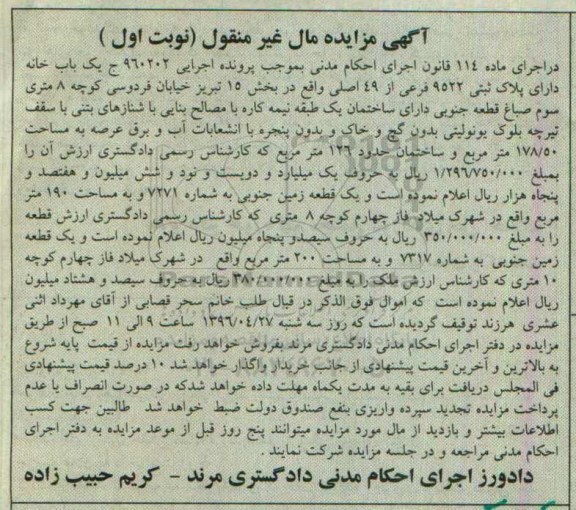 آگهی مزایده مال غیر منقول (نوبت اول )
دراجرای ماده ۱۱۴ قانون اجرای احکام مدنی بموجب پرونده اجرایی ۹۶۰۲۰۲ ج یک باب خانه
دارای پلاک ثبتی ۹۵۲۲ فرعی از ۴۹ اصلی واقع در بخش ۱۵ تبریز خیابان فردوسی کوچه ۸ متری
سوم صباغ قطعه جنوبی دارای ساختمان یک طبقه نیمه کاره با مصالح بنایی با شنازهای بتنی با سقف
تیرچه بلوک یونولیتی بدون گچ و خاک و بدون پنجره با انشعابات آب و برق عرصه به مساحت
۱۷۸/۵۰ متر مربع و ساختمان حدود ۱۲۶ متر مربع که کارشناس رسمی دادگستری ارزش آن را
بمبلغ ۱/۲۹۶/۷۵۰/۰۰۰ ریال به حروف یک میلیارد و دویست و نود و شش میلیون و هفتصد و
پنجاه هزار ریال اعلام نموده است و یک قطعه زمین جنوبی به شماره ۷۲۷۱ و به مساحت ۱۹۰ متر
مربع واقع در شهرک میلاد فاز چهارم کوچه ۸ متری که کارشناس رسمی دادگستری ارزش قطعه
را به مبلغ ۳۵۰/۰۰۰/۰۰۰ ریال به حروف سیصدو پنجاه میلیون ریال اعلام نموده است و یک قطعه
زمین جنوبی به شماره ۷۳۱۷ و به مساحت ۲۰۰ متر مربع واقع در شهرک میلاد فاز چهارم کوچه
۱۰ متری که کارشناس ارزش ملک را به مبلغ ۳۸۰/۰۰۰/۰۰۰ ریال به حروف سیصد و هشتاد میلیون
ریال اعلام نموده است که اموال فوق الذکر در قبال طلب خانم سحر قصابی از آقای مهرداد اثنی
عشری هرزند توقیف گردیده است که روز سه شنبه ۱۳۹۶/۰۴/۲۷ ساعت ۹ الی ۱۱ صبح از طریق
مزایده در دفتر اجرای احکام مدنی دادگستری مرند بفروش خواهد رفت مزایده از قیمت پایه شروع
به بالاترین و آخرین قیمت پیشنهادی از جانب خریدار واگذار خواهد شد ۱۰ درصد قیمت پیشنهادی
فی المجلس دریافت برای بقیه به مدت یکماه مهلت داده خواهد شدکه در صورت انصراف یا عدم
پرداخت مزایده تجدید سپرده واریزی بنفع صندوق دولت ضبط خواهد شد طالبین جهت کسب
اطلاعات بیشتر و بازدید از مال مورد مزایده میتوانند پنج روز قبل از موعد مزایده به دفتر اجرای
احکام مدنی مراجعه و در جلسه مزایده شرکت نمایند .
دادورز اجرای احکام مدنی دادگستری مرند - کریم حبیب زاده